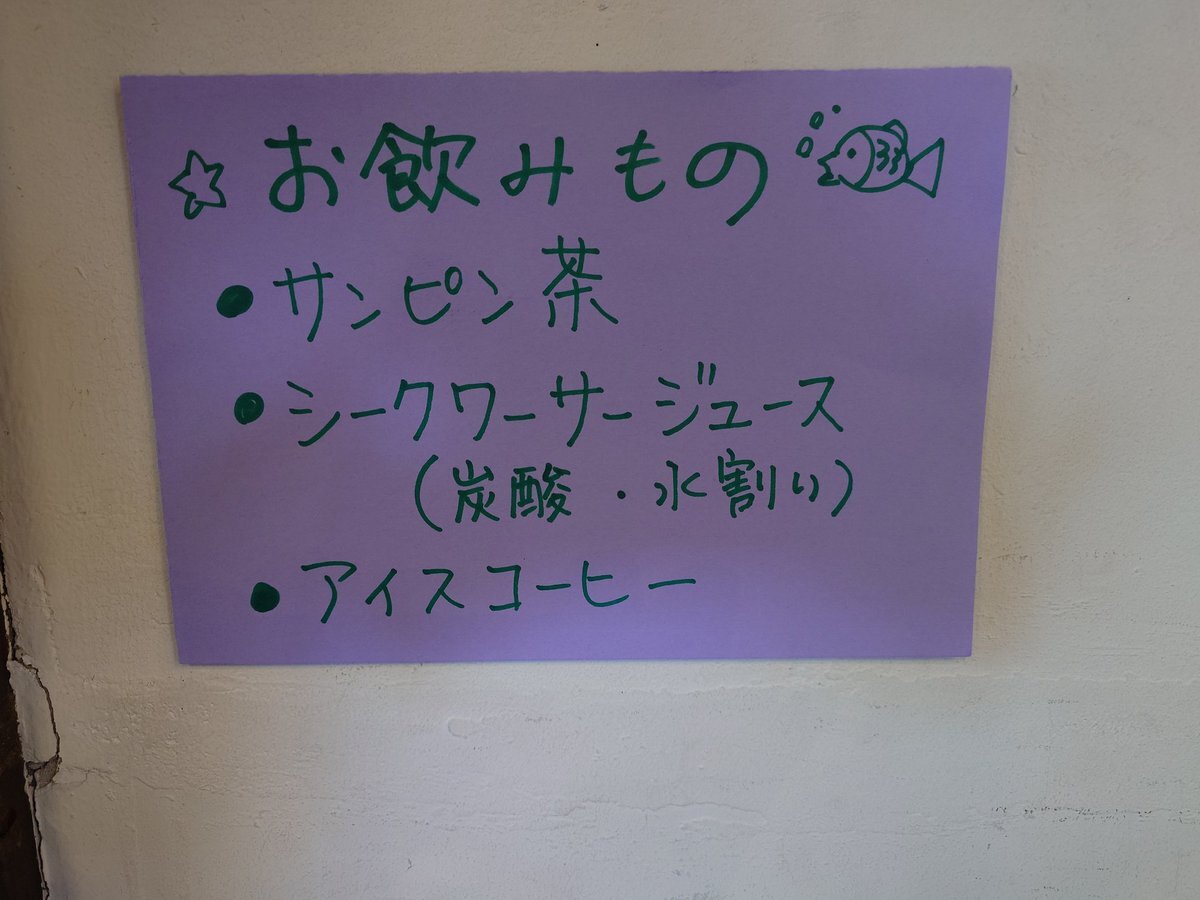 ☆ お飲みもの
● サンピン茶
● シークワーサージュース
(炭酸・水割り)
● アイスコーヒー